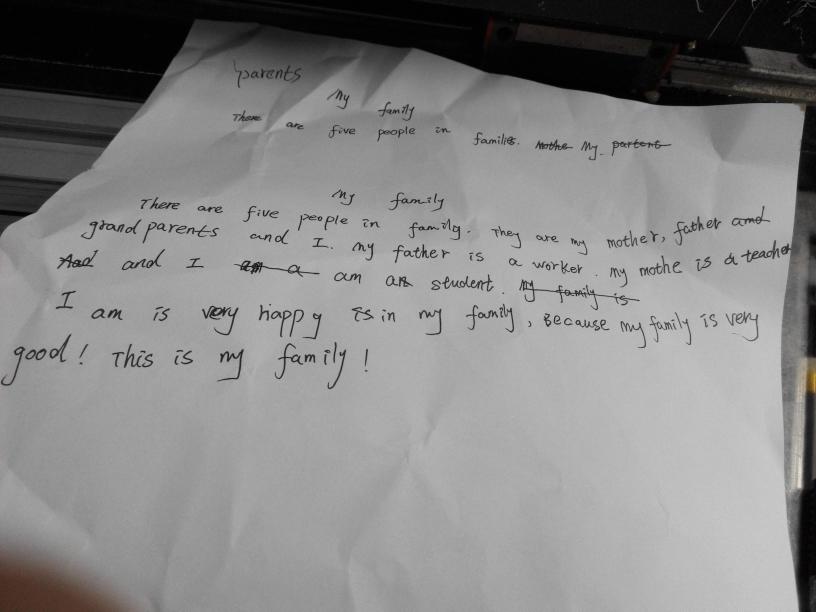 parents
My family
There are five people in families. Mothe My. partent
My family
There are five people in family. They are my mother, father and
grandparents and I. my father is a worker. my mothe is a teacher
And and I am a am an student. My family is
I am is very happy is in my family, Because my family is very
good! This is my family!